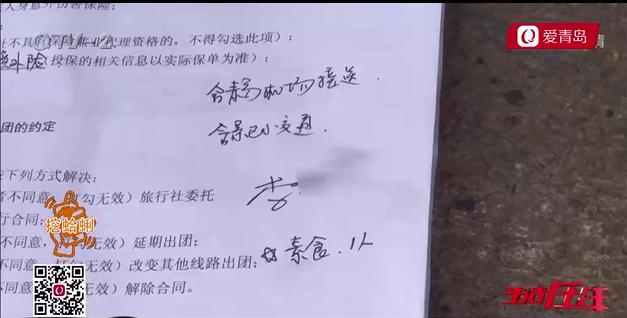 人身意外伤害保险；
不具有保险兼业代理资格的，不得勾选此项）：
意外险（投保的相关信息以实际保单为准）；
含青岛机场接送
含景区小交通
团的约定
按下列方式解决：
者不同意，打勾无效）旅行社委托
行合同；
不同意，打勾无效）延期出团；
不同意，打勾无效）改变其他线路出团；
素食.1人
不同意，打勾无效）解除合同。
李
爱青岛
挖蛤蜊
生活在线